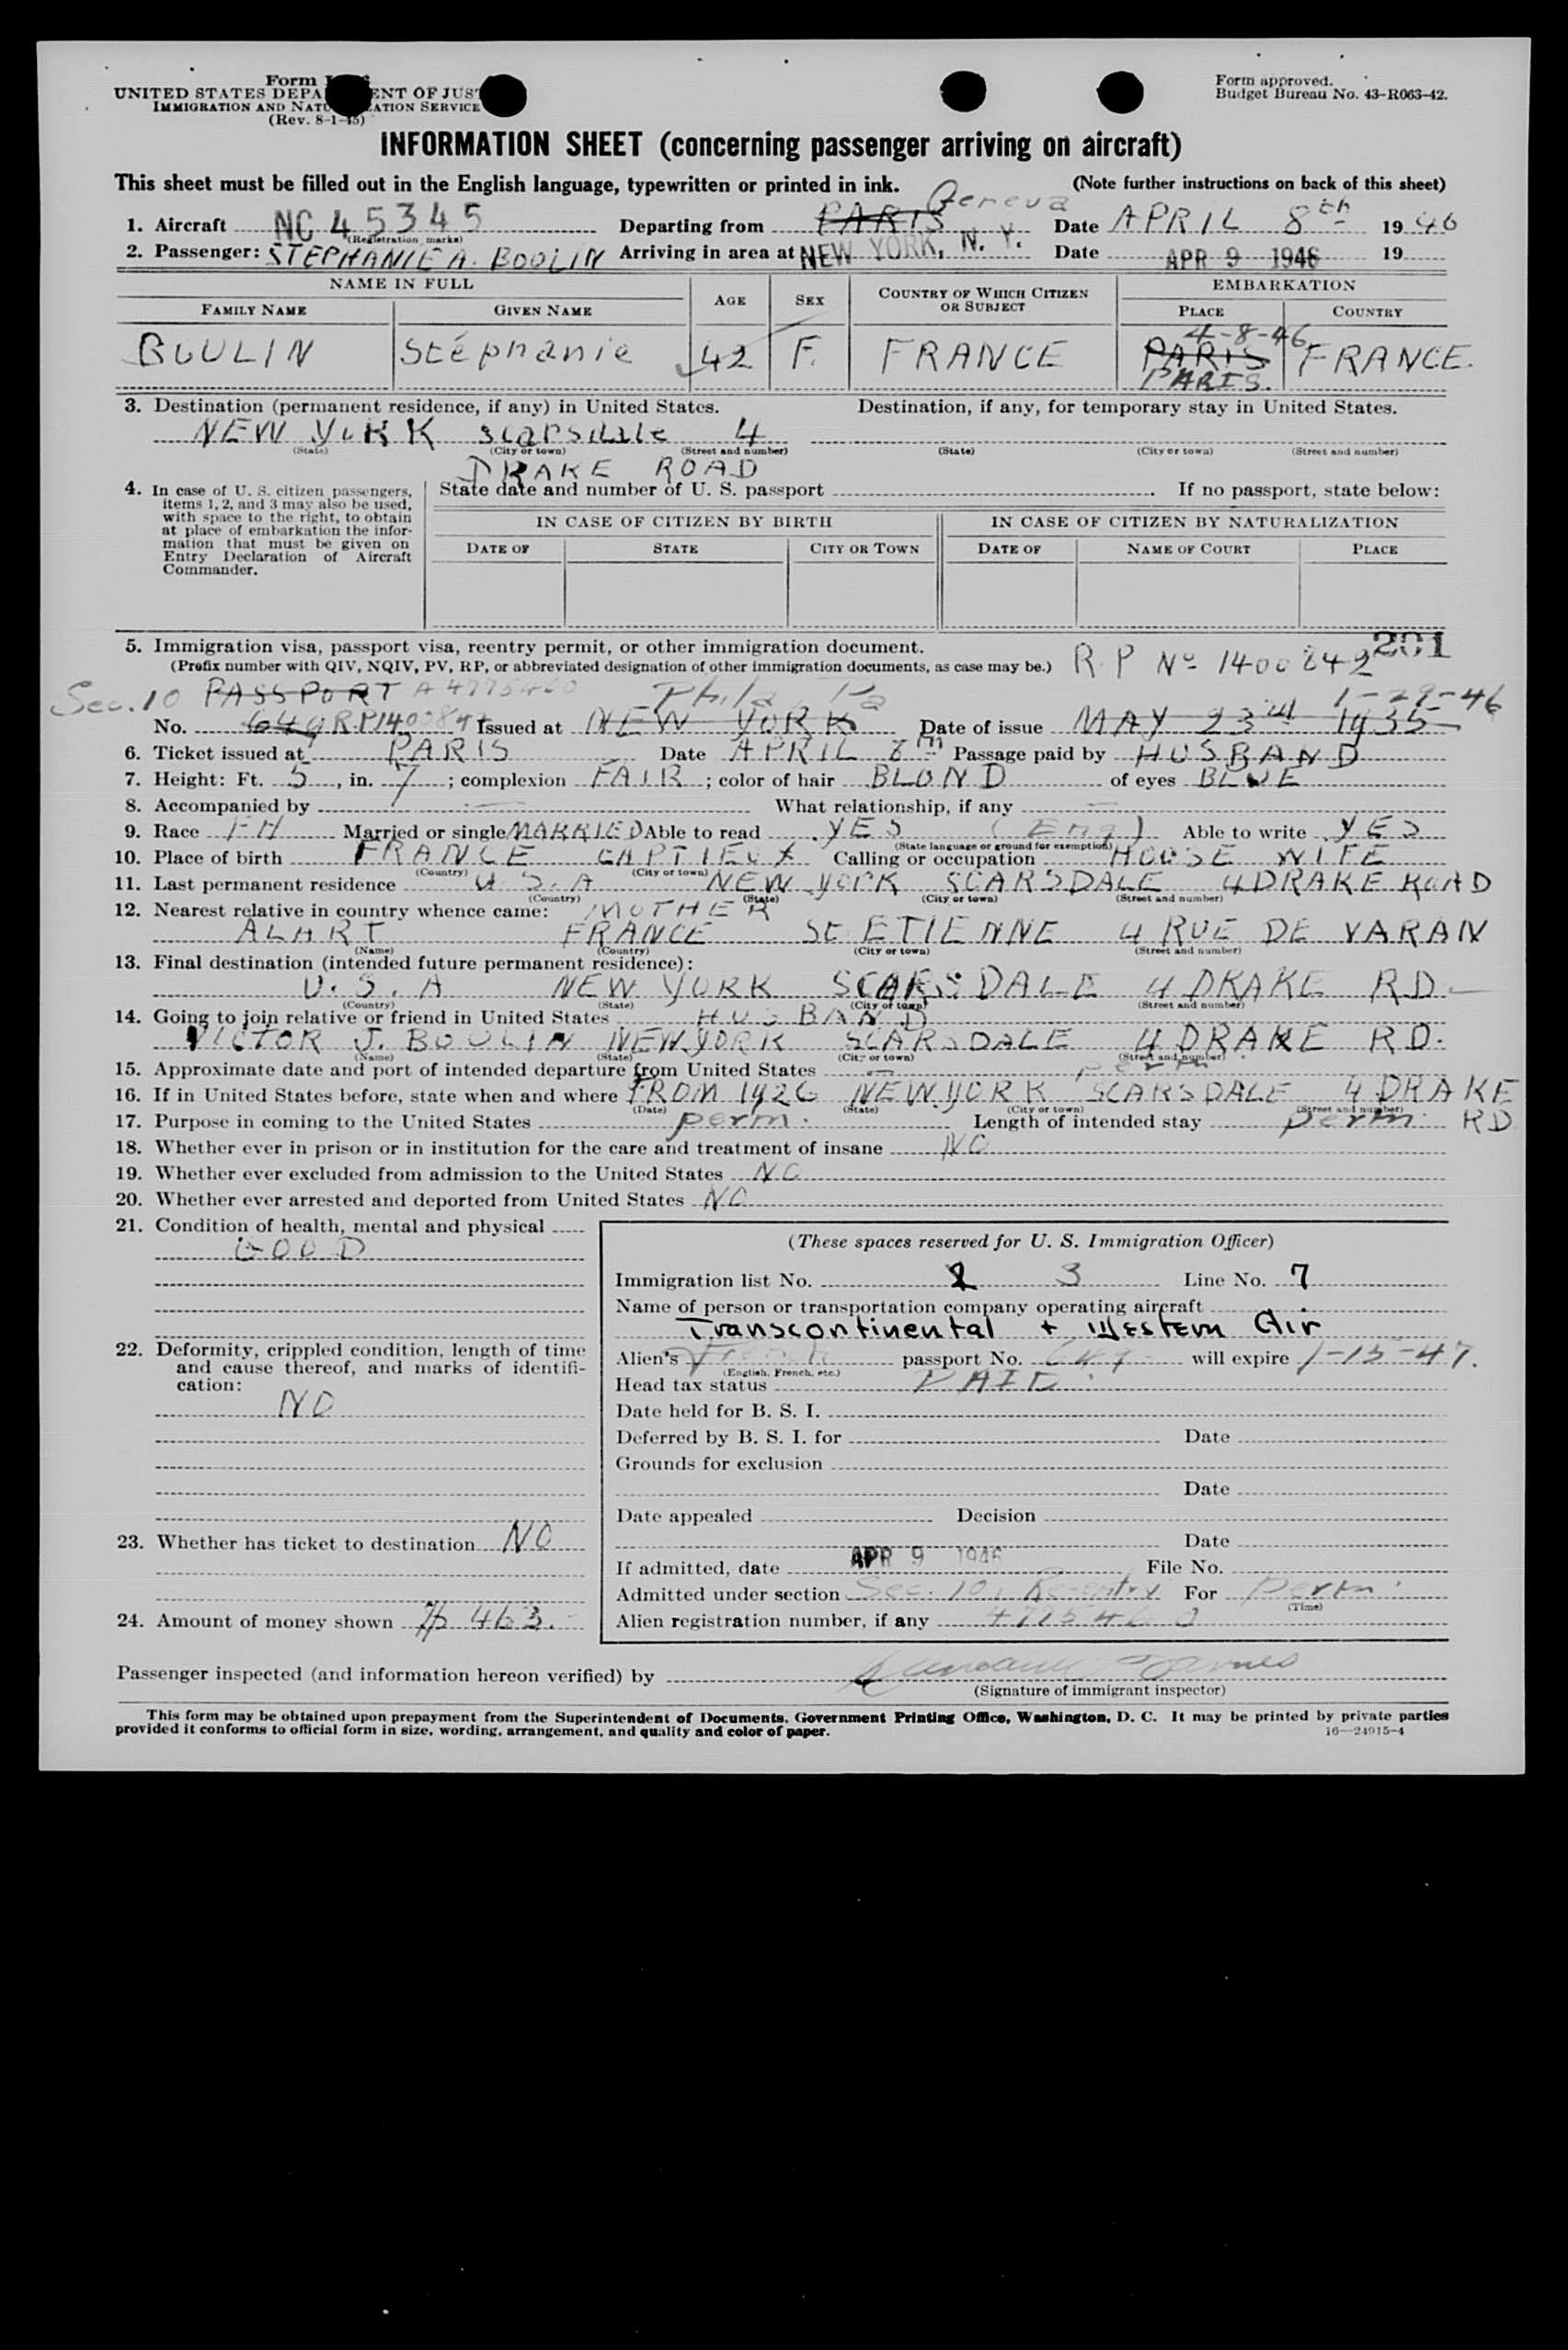 Form
UNITED STATES DEPA ENT OF JUS
IMMIGRATION AND NATU ATION SERVICE
(Rev. 8-1-45)
Form approved.
Budget Bureau No. 43-R063-42.
INFORMATION SHEET (concerning passenger arriving on aircraft)
This sheet must be filled out in the English language, typewritten or printed in ink. (Note further instructions on back of this sheet)
Geneva
1. Aircraft NC 45345 Departing from PARIS Date APRIL 8th 1946
(Registration marks)
2. Passenger: STEPHANIE A. BOULIN Arriving in area at NEW YORK, N. Y. Date APR 9 1946 19
NAME IN FULL AGE SEX COUNTRY OF WHICH CITIZEN OR SUBJECT EMBARKATION
FAMILY NAME GIVEN NAME PLACE COUNTRY
4-8-46
BOULIN Stéphanie 42 F. FRANCE PARIS FRANCE.
PARIS.
3. Destination (permanent residence, if any) in United States. Destination, if any, for temporary stay in United States.
NEW YORK Scarsdale 4
(State) (City or town) (Street and number) (State) (City or town) (Street and number)
DRAKE ROAD
4. In case of U. S. citizen passengers, items 1, 2, and 3 may also be used, with space to the right, to obtain at place of embarkation the information that must be given on Entry Declaration of Aircraft Commander.
State date and number of U. S. passport . If no passport, state below:
IN CASE OF CITIZEN BY BIRTH IN CASE OF CITIZEN BY NATURALIZATION
DATE OF STATE CITY OR TOWN DATE OF NAME OF COURT PLACE
5. Immigration visa, passport visa, reentry permit, or other immigration document.
(Prefix number with QIV, NQIV, PV, RP, or abbreviated designation of other immigration documents, as case may be.) R.P No 1400842 201
Sec. 10 PASSPORT A 4775460 Phila Pa 1-29-46
No. 649 RP1400842 Issued at NEW YORK Date of issue MAY 23rd 1935
6. Ticket issued at PARIS Date APRIL 8TH Passage paid by HUSBAND
7. Height: Ft. 5, in. 7; complexion FAIR; color of hair BLOND of eyes BLUE
8. Accompanied by — What relationship, if any —
9. Race FH Married or single MARRIED Able to read YES (Eng) Able to write YES
(State language or ground for exemption)
10. Place of birth FRANCE CAPTIEUX Calling or occupation HOUSE WIFE
(Country) (City or town)
11. Last permanent residence U.S.A NEW YORK SCARSDALE 4 DRAKE ROAD
(Country) (State) (City or town) (Street and number)
12. Nearest relative in country whence came: MOTHER
ALART FRANCE St ETIENNE 4 RUE DE VARAN
(Name) (Country) (City or town) (Street and number)
13. Final destination (intended future permanent residence):
U.S.A NEW YORK SCARSDALE 4 DRAKE RD
(Country) (State) (City or town) (Street and number)
14. Going to join relative or friend in United States HUSBAND
VICTOR J. BOULIN NEW YORK SCARSDALE 4 DRAKE RD.
(Name) (State) (City or town) (Street and number)
15. Approximate date and port of intended departure from United States — perm
16. If in United States before, state when and where FROM 1926 NEW YORK SCARSDALE 4 DRAKE
(Date) (State) (City or town) (Street and number)
17. Purpose in coming to the United States perm. Length of intended stay perm. RD
18. Whether ever in prison or in institution for the care and treatment of insane NO
19. Whether ever excluded from admission to the United States NO
20. Whether ever arrested and deported from United States NO
21. Condition of health, mental and physical
GOOD
22. Deformity, crippled condition, length of time and cause thereof, and marks of identification:
NO
23. Whether has ticket to destination NO
24. Amount of money shown $ 463.
(These spaces reserved for U. S. Immigration Officer)
Immigration list No. 2 3 Line No. 7
Name of person or transportation company operating aircraft
Transcontinental + Western Air
Alien's French passport No. 649 will expire 1-15-47.
(English, French, etc.)
Head tax status PAID
Date held for B. S. I.
Deferred by B. S. I. for Date
Grounds for exclusion
Date
Date appealed Decision
Date
If admitted, date APR 9 1946 File No.
Admitted under section Sec. 10, Re-entry For Perm.
(Time)
Alien registration number, if any 4775460
Passenger inspected (and information hereon verified) by
(Signature of immigrant inspector)
This form may be obtained upon prepayment from the Superintendent of Documents, Government Printing Office, Washington, D. C. It may be printed by private parties
provided it conforms to official form in size, wording, arrangement, and quality and color of paper. 16—24915-4